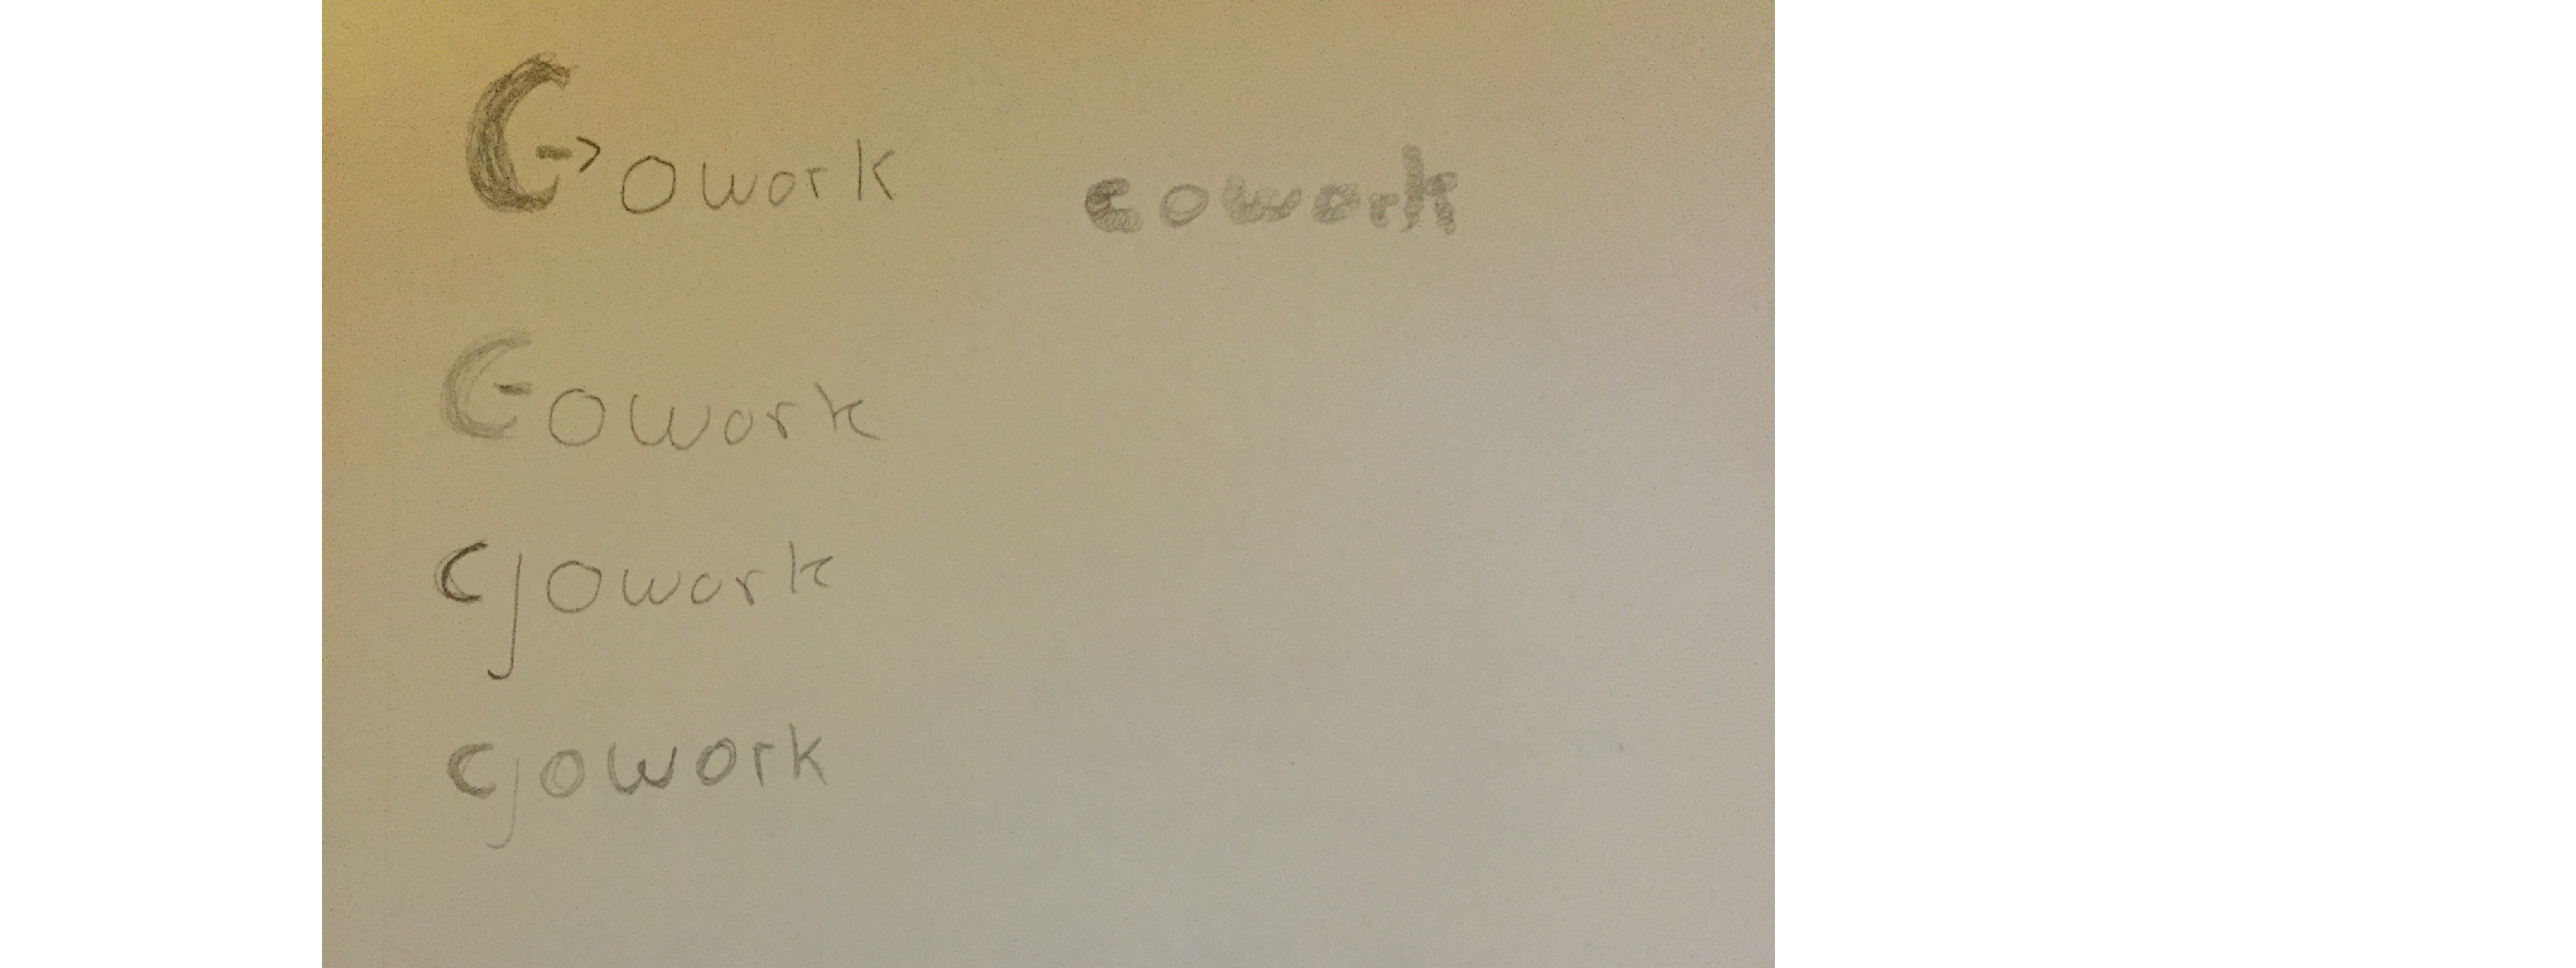 C->owork cowork
C-owork
cjowork
cjowork